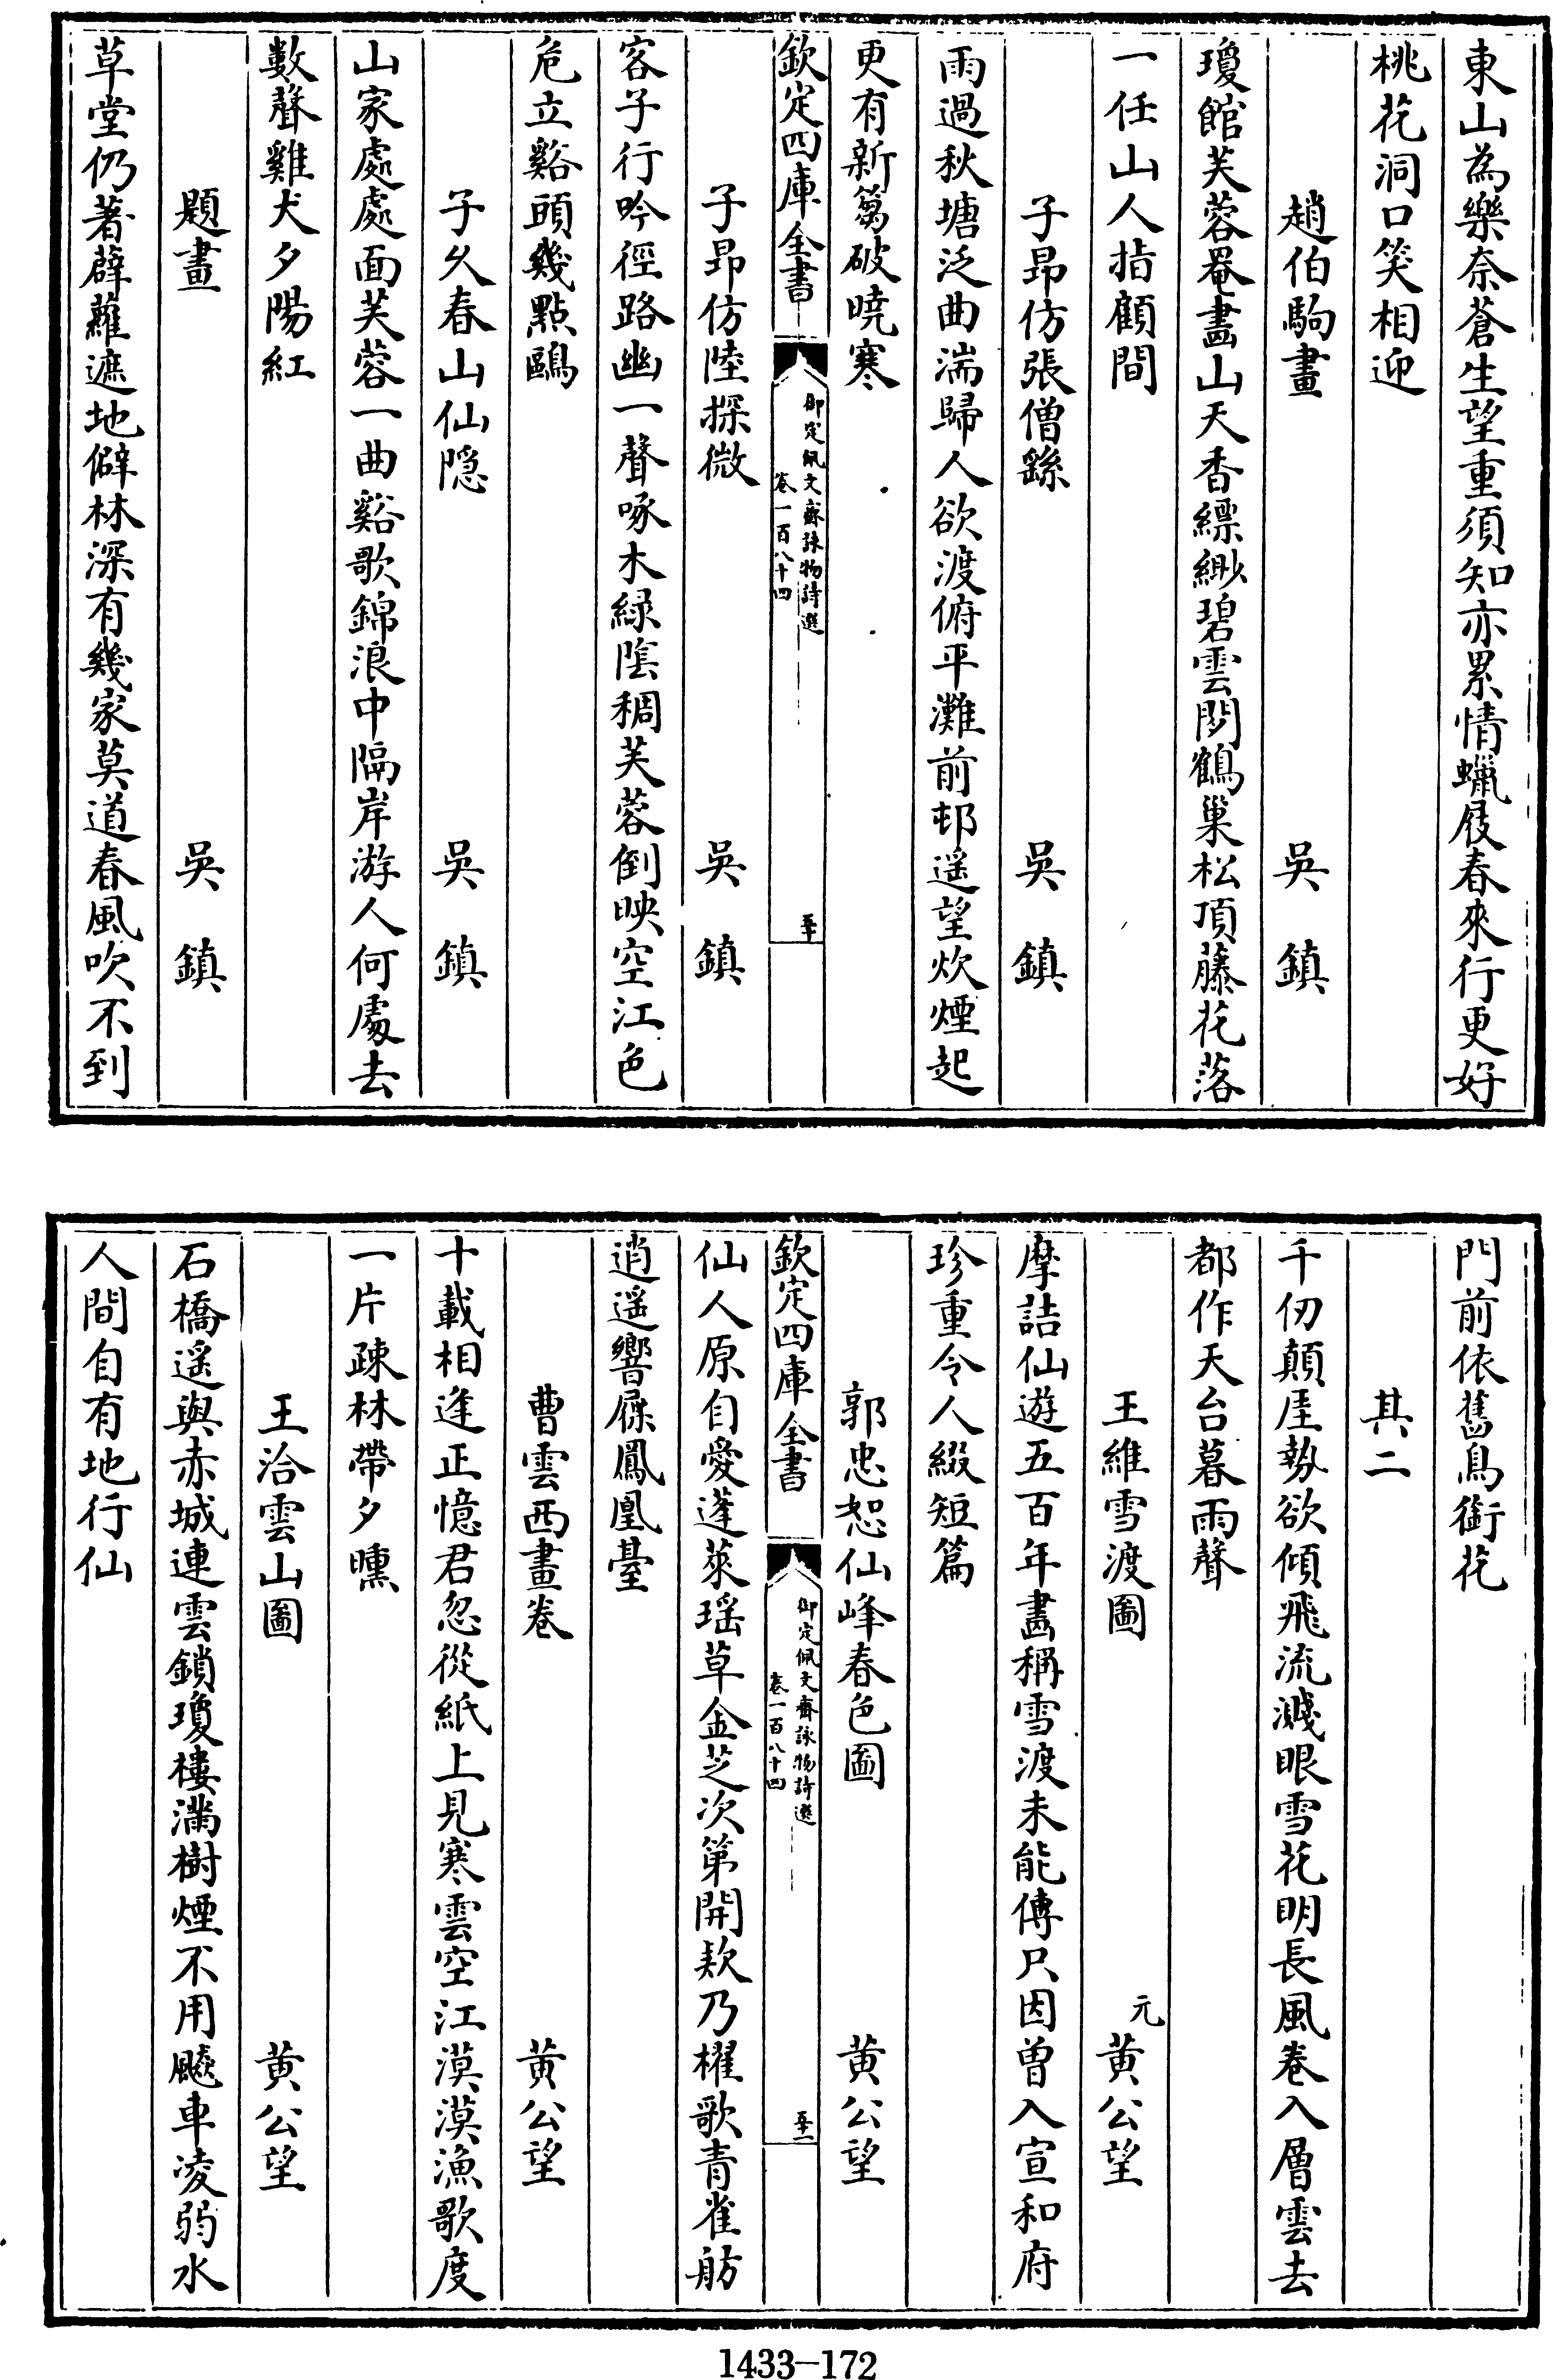 東山為樂奈蒼生望重須知亦累情蠟屐春來行更好
桃花洞口笑相迎
趙伯駒畫 吳鎮
瓊館芙蓉罨畵山天香縹緲碧雲閒鶴巢松頂藤花落
一任山人指顧間
子昂仿張僧繇 吳鎮
雨過秋塘泛曲湍歸人欲渡俯平灘前邨遥望炊煙起
更有新篘破曉寒
欽定四庫全書
御定佩文齋詠物詩選
卷一百八十四
五十
子昂仿陸探微 吳鎮
客子行吟徑路幽一聲啄木緑陰稠芙蓉倒映空江色
危立谿頭幾點鷗
子久春山仙隠 吳鎮
山家處處面芙蓉一曲谿歌錦浪中隔岸游人何處去
數聲雞犬夕陽紅
題畫 吳鎮
草堂仍著薜蘿遮地僻林深有幾家莫道春風吹不到
門前依舊鳥銜花
其二
千仞顛厓勢欲傾飛流濺眼雪花明長風卷入層雲去
都作天台暮雨聲
王維雪渡圖 元黄公望
摩詰仙遊五百年畵稱雪渡未能傳只因曾入宣和府
珍重令人綴短篇
郭忠恕仙峰春色圖 黄公望
欽定四庫全書
御定佩文齋詠物詩選
卷一百八十四
五十一
仙人原自愛蓬萊瑶草金芝次第開欵乃櫂歌青雀舫
逍遥響屧鳳凰臺
曹雲西畫卷 黄公望
十載相逢正憶君忽從紙上見寒雲空江漠漠漁歌度
一片疎林帶夕曛
王洽雲山圖 黄公望
石橋遥與赤城連雲鎖瓊樓滿樹煙不用飈車凌弱水
人間自有地行仙
1433—172